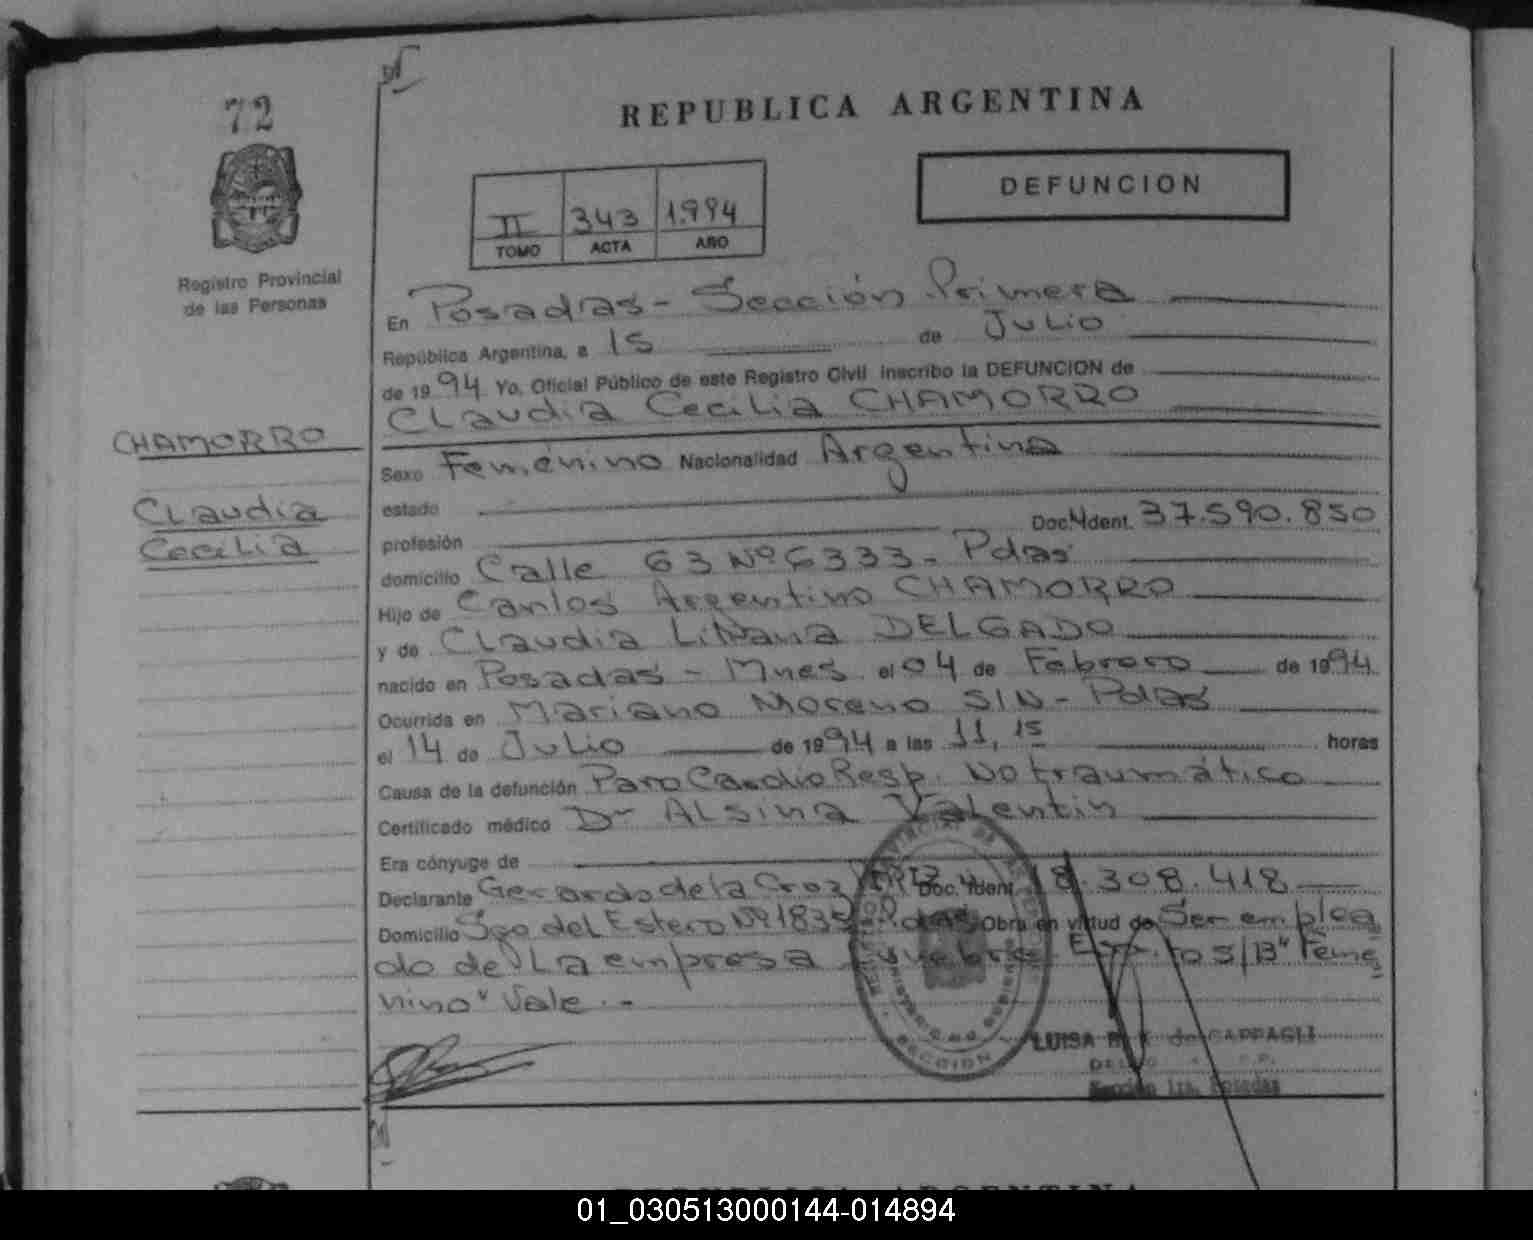 72
REPUBLICA ARGENTINA
DEFUNCION
II 343 1.994
TOMO ACTA AÑO
Registro Provincial
de las Personas
En Posadas - Sección Primera
República Argentina, a 15 de Julio
de 1994 Yo, Oficial Público de este Registro Civil inscribo la DEFUNCION de
Claudia Cecilia CHAMORRO
CHAMORRO
Claudia
Cecilia
Sexo Femenino Nacionalidad Argentina
estado
profesión Doc. Ident. 37.590.850
domicilio Calle 63 Nº 6333 - Pdas
Hijo de Carlos Argentino CHAMORRO
y de Claudia Liliana DELGADO
nacido en Posadas - Mnes. el 04 de Febrero de 1994
Ocurrida en Mariano Moreno S/N - Pdas
el 14 de Julio de 1994 a las 11,15 horas
Causa de la defunción Paro Cardio Resp. No traumático
Certificado médico Dr Alsina Valentin
Era cónyuge de
Declarante Gerardo de la Croz Doc. Ident. 18.308.418
Domicilio Sgo del Estero Nº 1835 Pdas Obra en virtud de Ser emplea
do de La empresa fúnebre. S/B "Feme
nino" Vale. -
SECCION
LUISA de CAPPAGLI
Sección 1ra. Posadas
REPUBLICA ARGENTINA
01_030513000144-014894